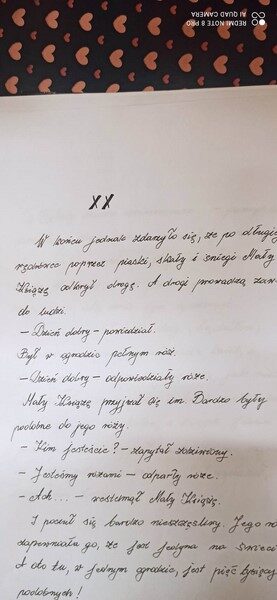 REDMI NOTE 8 PRO
AI QUAD CAMERA
XX
W końcu jednak zdarzyło się, że po długiej
wędrówce poprzez piaski, skały i śniegi Mały
Książę odkrył drogę. A drogi prowadzą zaw
do ludzi.
- Dzień dobry - powiedział.
Był w ogrodzie pełnym róż.
- Dzień dobry - odpowiedziały róże.
Mały Książę przyjrzał się im. Bardzo były
podobne do jego róży.
- Kim jesteście? - zapytał zdziwiony.
- Jesteśmy różami - odparły róże.
- Ach.... - westchnął Mały Książę.
I poczuł się bardzo nieszczęśliwy. Jego ró
zapewniała go, że jest jedyna na świeci
A oto tu, w jednym ogrodzie, jest pięć tysięcy
podobnych!